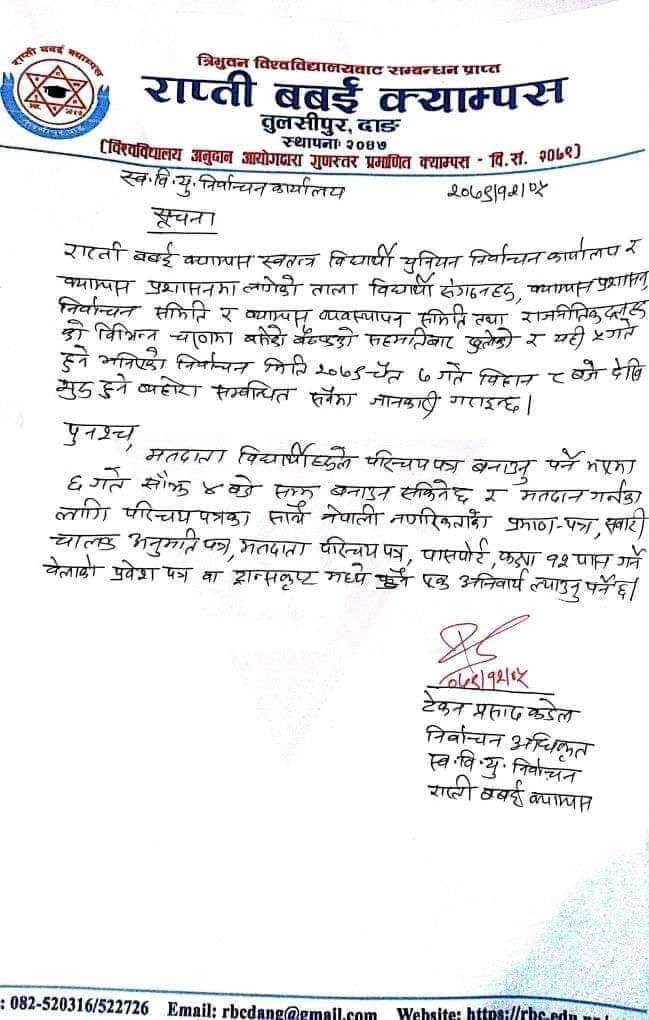 राप्ती बबई क्याम्पस
तुलसीपुर दाङ
त्रिभुवन विश्वविद्यालयबाट सम्बन्धन प्राप्त
राप्ती बबई क्याम्पस
तुलसीपुर, दाङ
स्थापनाः २०४७
(विश्वविद्यालय अनुदान आयोगद्वारा गुणस्तर प्रमाणित क्याम्पस - वि.सं. २०७९)
स्व.वि.यु. निर्वाचन कार्यालय
२०७९/१२/०५
सूचना
राप्ती बबई क्याम्पस स्वतन्त्र विद्यार्थी युनियन निर्वाचन कार्यालय र
क्याम्पस प्रशासनमा लागेको ताला विद्यार्थी संगठनहरू, क्याम्पस प्रशासन,
निर्वाचन समिति र क्याम्पस व्यवस्थापन समिति तथा राजनीतिक दलहरू
को विभिन्न चरणमा बसेको बैठकको सहमतिबाट खुलेको र यही ५ गते
हुने भनिएको निर्वाचन मिति २०७९ चैत ७ गते विहान ८ बजे देखि
सुरु हुने व्यहोरा सम्बन्धित सबैमा जानकारी गराइन्छ।
पुनश्च,
मतदाता विद्यार्थीहरूले परिचयपत्र बनाउनु पर्ने भएमा
६ गते साँझ ४ बजे सम्म बनाउन सकिनेछ र मतदान गर्नका
लागि परिचयपत्रका साथै नेपाली नागरिकताको प्रमाण-पत्र, सवारी
चालक अनुमति पत्र, मतदाता परिचय पत्र, पासपोर्ट, कक्षा १२ पास गर्ने
वेलाको प्रवेश पत्र वा ट्रान्सकृप्ट मध्ये कुनै एक अनिवार्य ल्याउनु पर्ने छ।
०७९/१२/०५
टेकन प्रसाद कडेल
निर्वाचन अधिकृत
स्व.वि.यु. निर्वाचन
राप्ती बबई क्याम्पस
: 082-520316/522726 Email: rbcdang@gmail.com Website: https://rbc.edu.np/